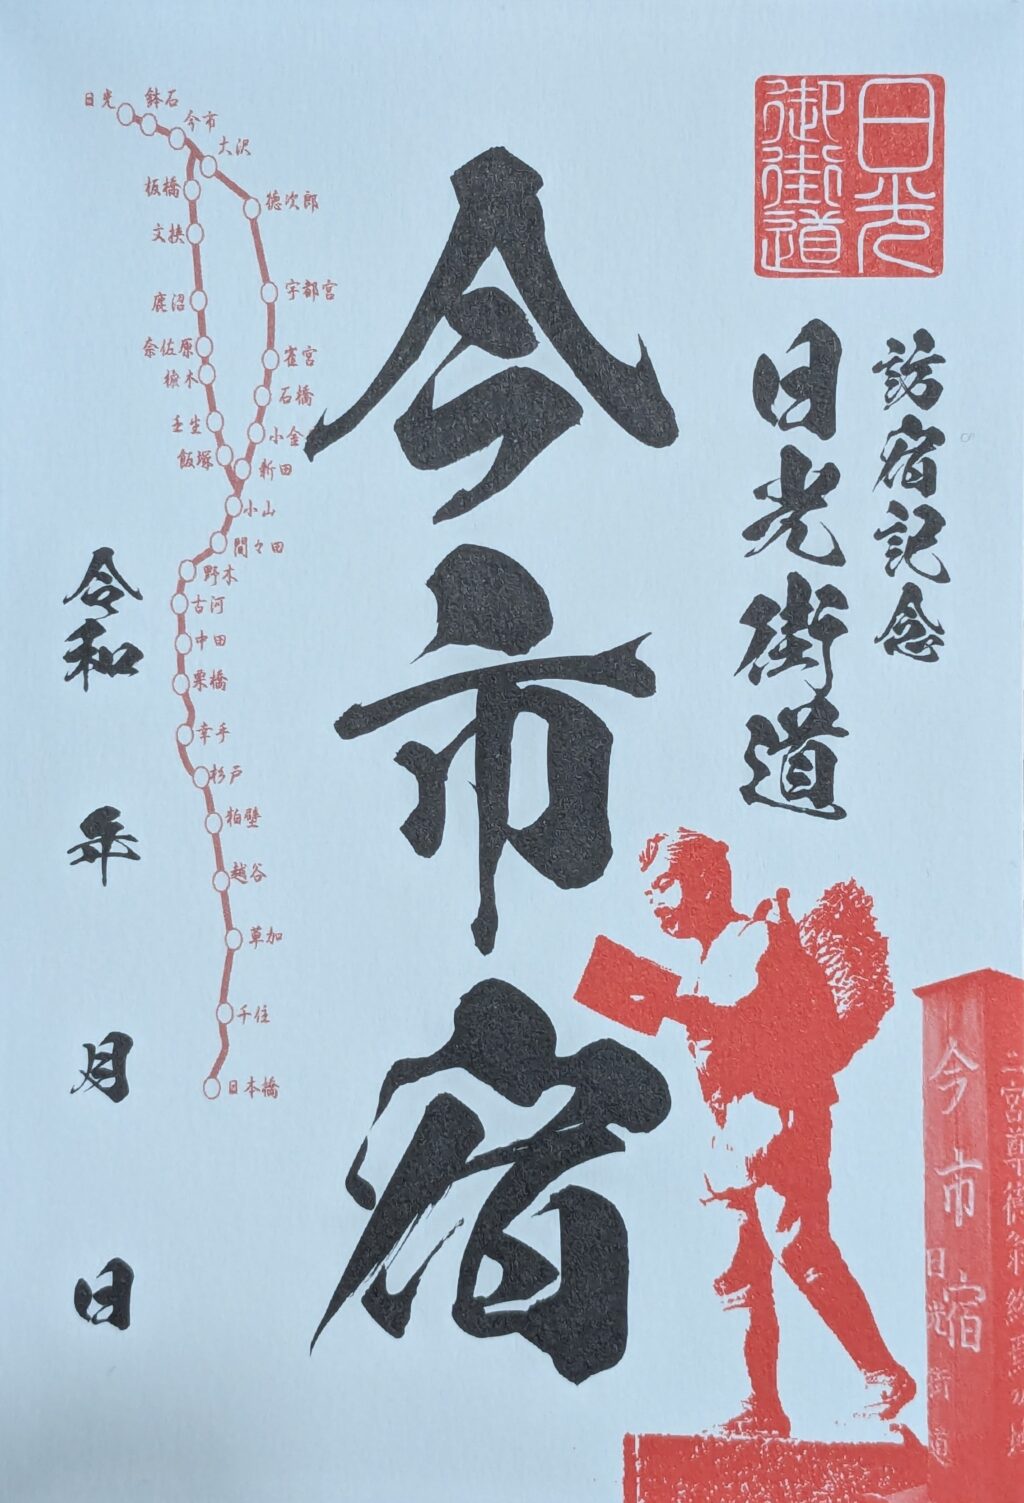 日光
御街道
訪宿記念
日光街道
今市宿
日光
鉢石
今市
大沢
板橋
徳次郎
文挟
宇都宮
鹿沼
奈佐原
雀宮
楡木
石橋
壬生
小金
飯塚
新田
小山
間々田
野木
古河
中田
栗橋
幸手
杉戸
粕壁
越谷
草加
千住
日本橋
令和 年 月 日
今市宿
日光街道
二宮尊徳翁終焉の地